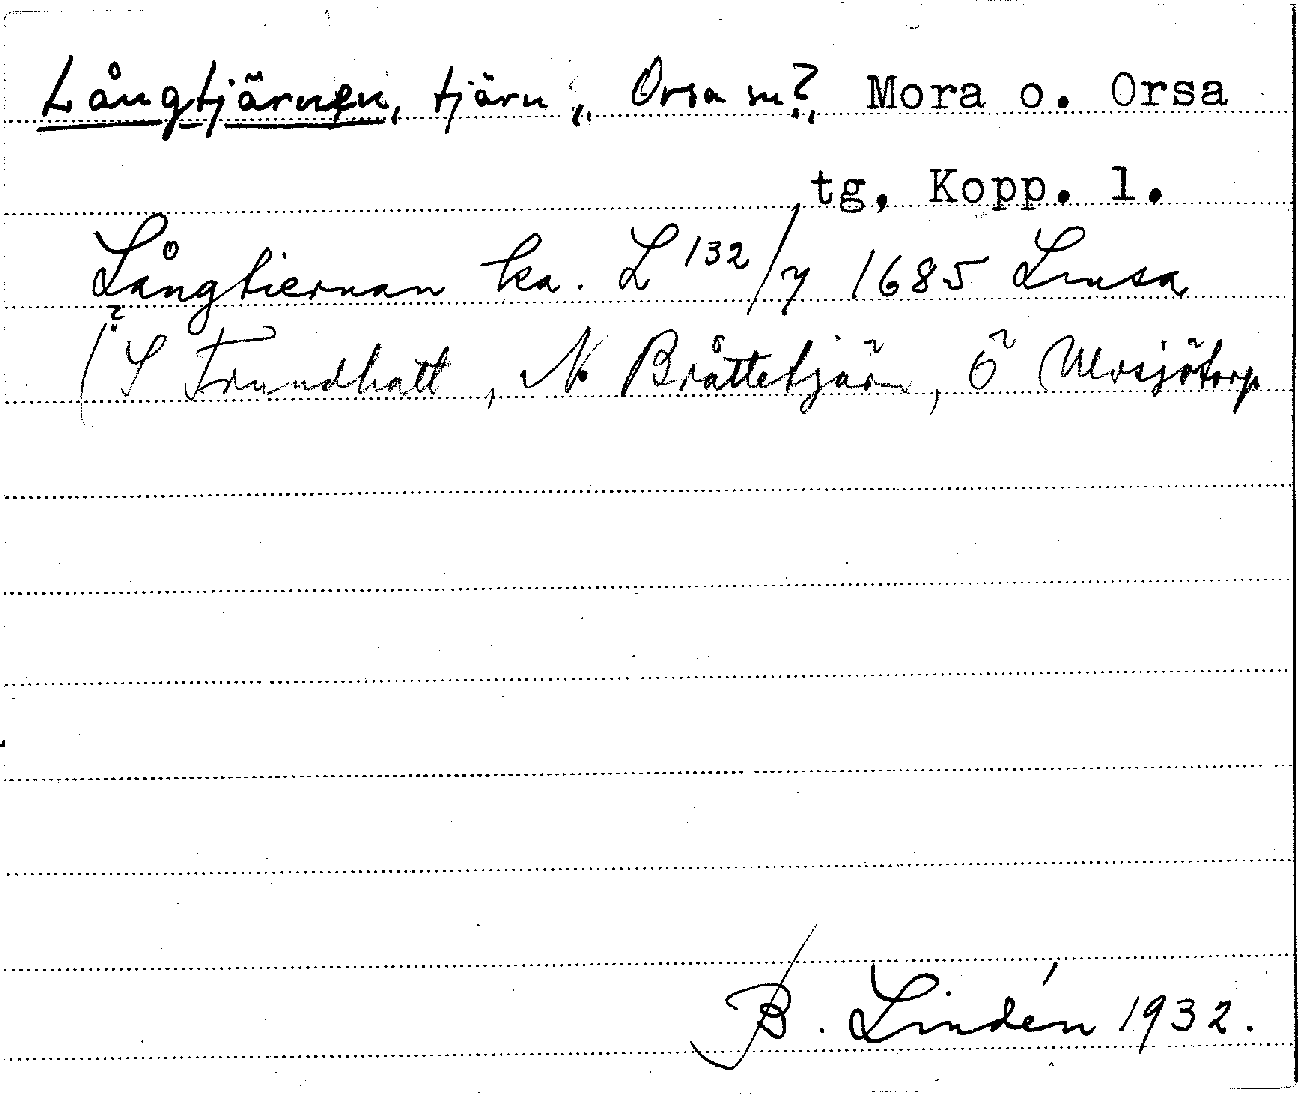 Långtjärnen, tjärn, Orsa sn?, Mora o. Orsa
tg, Kopp. l.
Långtiernan ka. L 132/7 1685 Lmsa
(? S Trundhatt, N Bråttetjärn, Ö Ulvsjötorp
B. Lindén 1932.